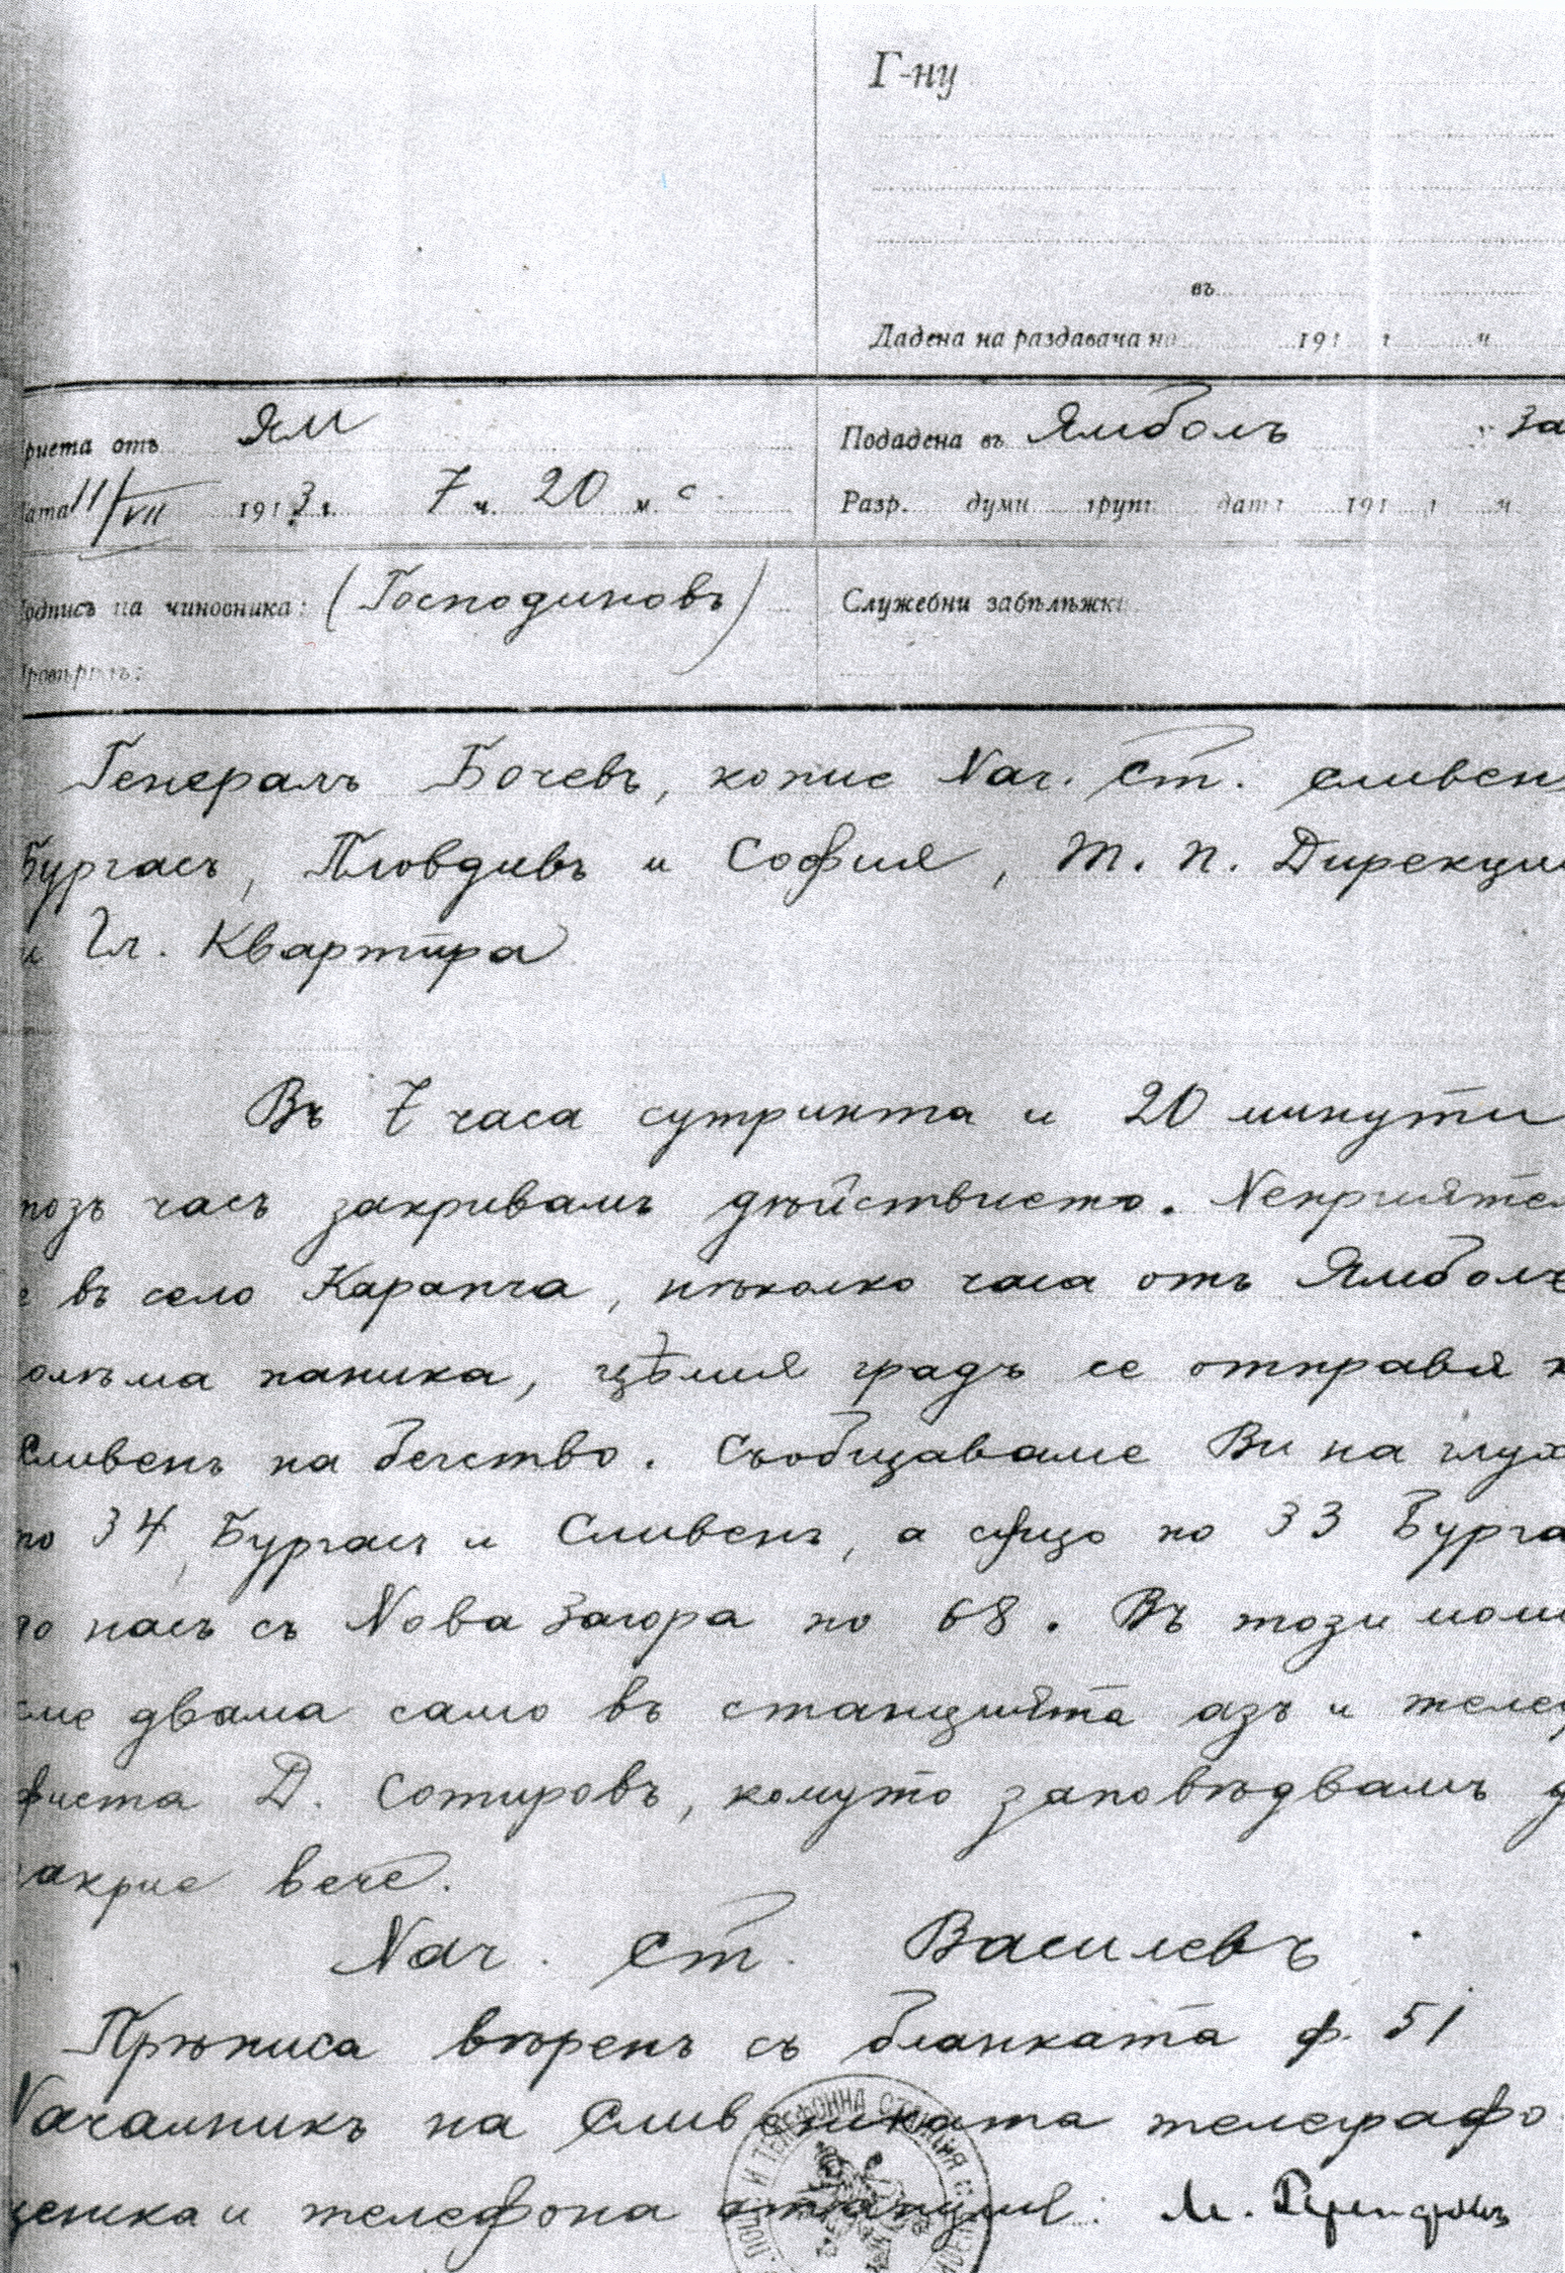 Г-ну
въ
Дадена на раздавача на 191 г ч
риета отъ Ям Подадена въ Ямболъ За
ата 11/VII 1913 г. 7 ч. 20 м. с.
Разр. думи груп дата 191 г ч
одпись на чиновника: (Господиновъ) Служебни забѣлѣжки
Генералъ Бочевъ, копие Нач. Ст. Сливен
Бургасъ, Пловдивъ и София, Т. П. Дирекци
и Гл. Квартира
Въ 7 часа сутринта и 20 минути
тозъ часъ закривамъ дѣйствието. Неприяте
е въ село Карапча, нѣколко часа отъ Ямболъ
олѣма паника, цѣлия градъ се отправя к
Сливенъ на бегство. Съобщаваме Ви на глух
по 34, Бургасъ и Сливенъ, а също по 33 Бурга
насъ съ Нова Загора по 68. Въ този мом
сме двама само въ станцията азъ и телег
фиста Д. Сотировъ, комуто заповѣдвамъ д
акрие вече.
Нач. Ст. Василевъ
Прѣписа вѣренъ съ бланката ф. 51
Началникъ на Сливенската телеграфо
ценска и телефона станция: М.